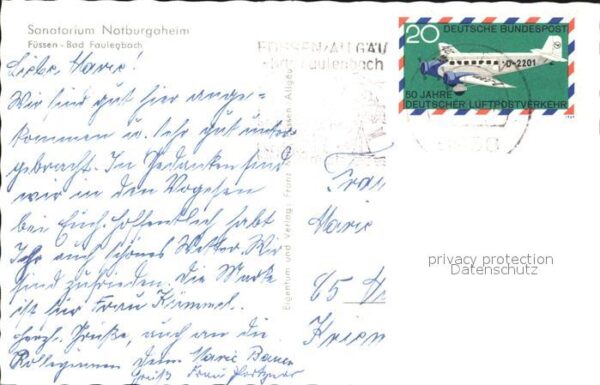 Sanatorium Notburgaheim
Füssen - Bad Faulenbach
Liebe Marie!
Wir sind gut hier ange-
kommen u. sehr gut unter
gebracht. In Gedanken sind
wir in den Vogesen
bei Euch. Hoffentlich habt
Ihr auch schönes Wetter. Wir
sind zufrieden. Die Marke
ist für Frau Kimmel.
Herzl. Grüße, auch an die
Kolleginnen Deine Marie Bauer
Gruß Frau
Eigentum und Verlag: Franz Allgäu
FÜSSEN/ALLGÄU
Bad Faulenbach
20 DEUTSCHE BUNDESPOST
D-2201
50 JAHRE
DEUTSCHER LUFTPOSTVERKEHR
Frau
Marie
65
privacy protection
Datenschutz